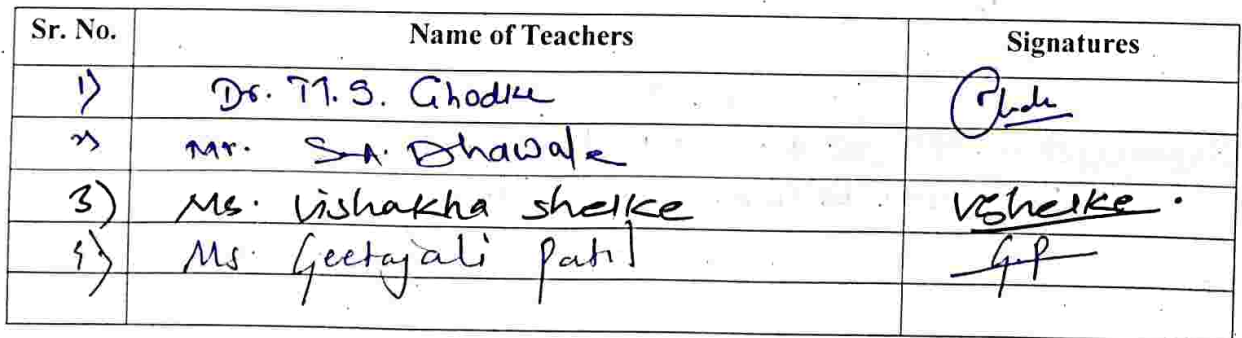 Sr. No. Name of Teachers Signatures
1) Dr. M.S. Ghodke
2) Mr. S.A. Dhawale
3) Ms. Vishakha Shelke VShelke.
4) Ms. Geetajali Patil G.P